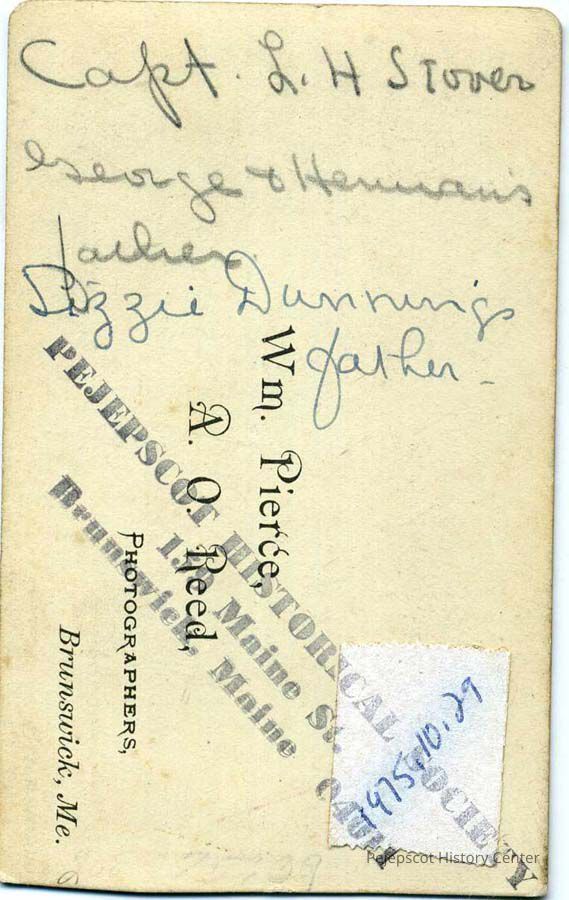 Capt. L. H Stover
George & Herman's
father.
Lizzie Dunnings
father -
Wm. Pierce,
A. O. Reed,
PHOTOGRAPHERS,
Brunswick, Me.
PEJEPSCOT HISTORICAL SOCIETY
Maine St.
Brunswick, Maine
1975.10.29
Pejepscot History Center